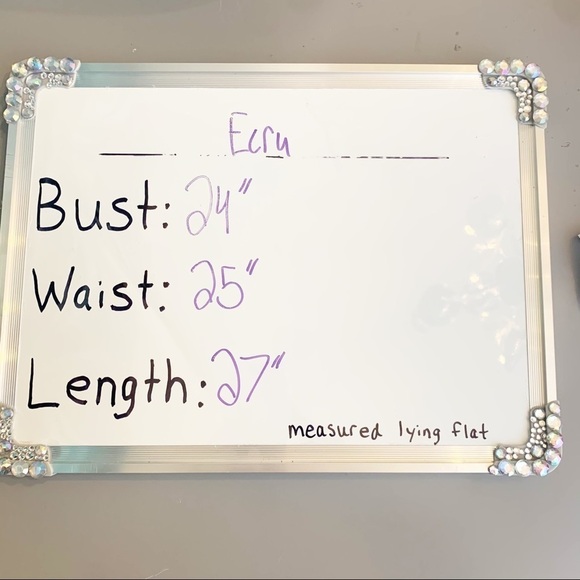 Ecru
Bust: 24"
Waist: 25"
Length: 27"
measured lying flat